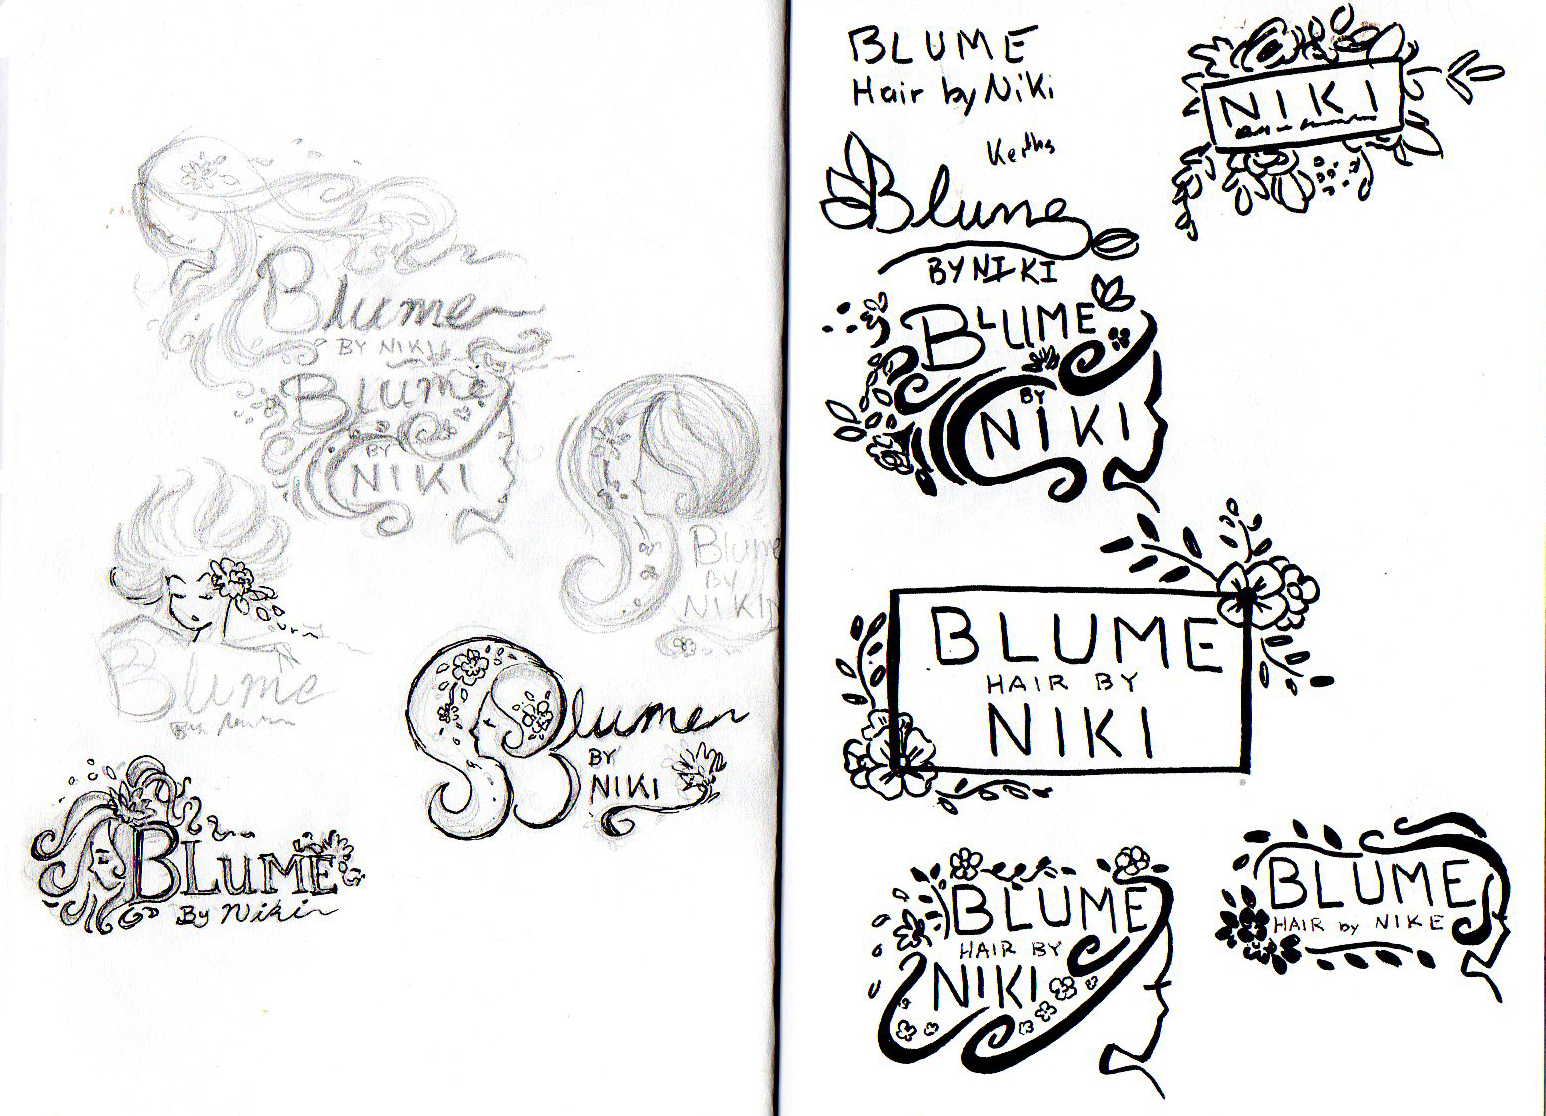 Blume
BY NIKI
Blume
BY
NIKI
Blume
BY
NIKI
Blume
Blume
BY
NIKI
BLUME
By Niki
BLUME
Hair by Niki
NIKI
Blume
BY NIKI
BLUME
BY
NIKI
BLUME
HAIR BY
NIKI
BLUME
HAIR BY
NIKI
BLUME
HAIR by NIKE